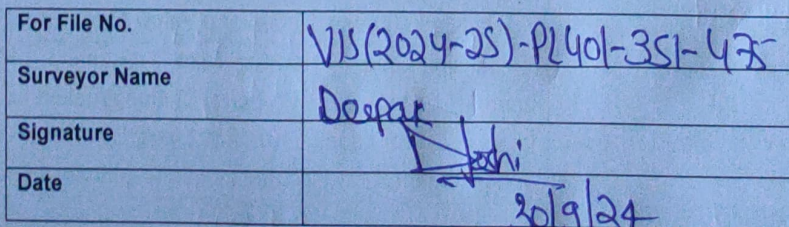 For File No. VIS(2024-25)-PL401-351-475
Surveyor Name Deepak
Signature Joshi
Date 30/9/24